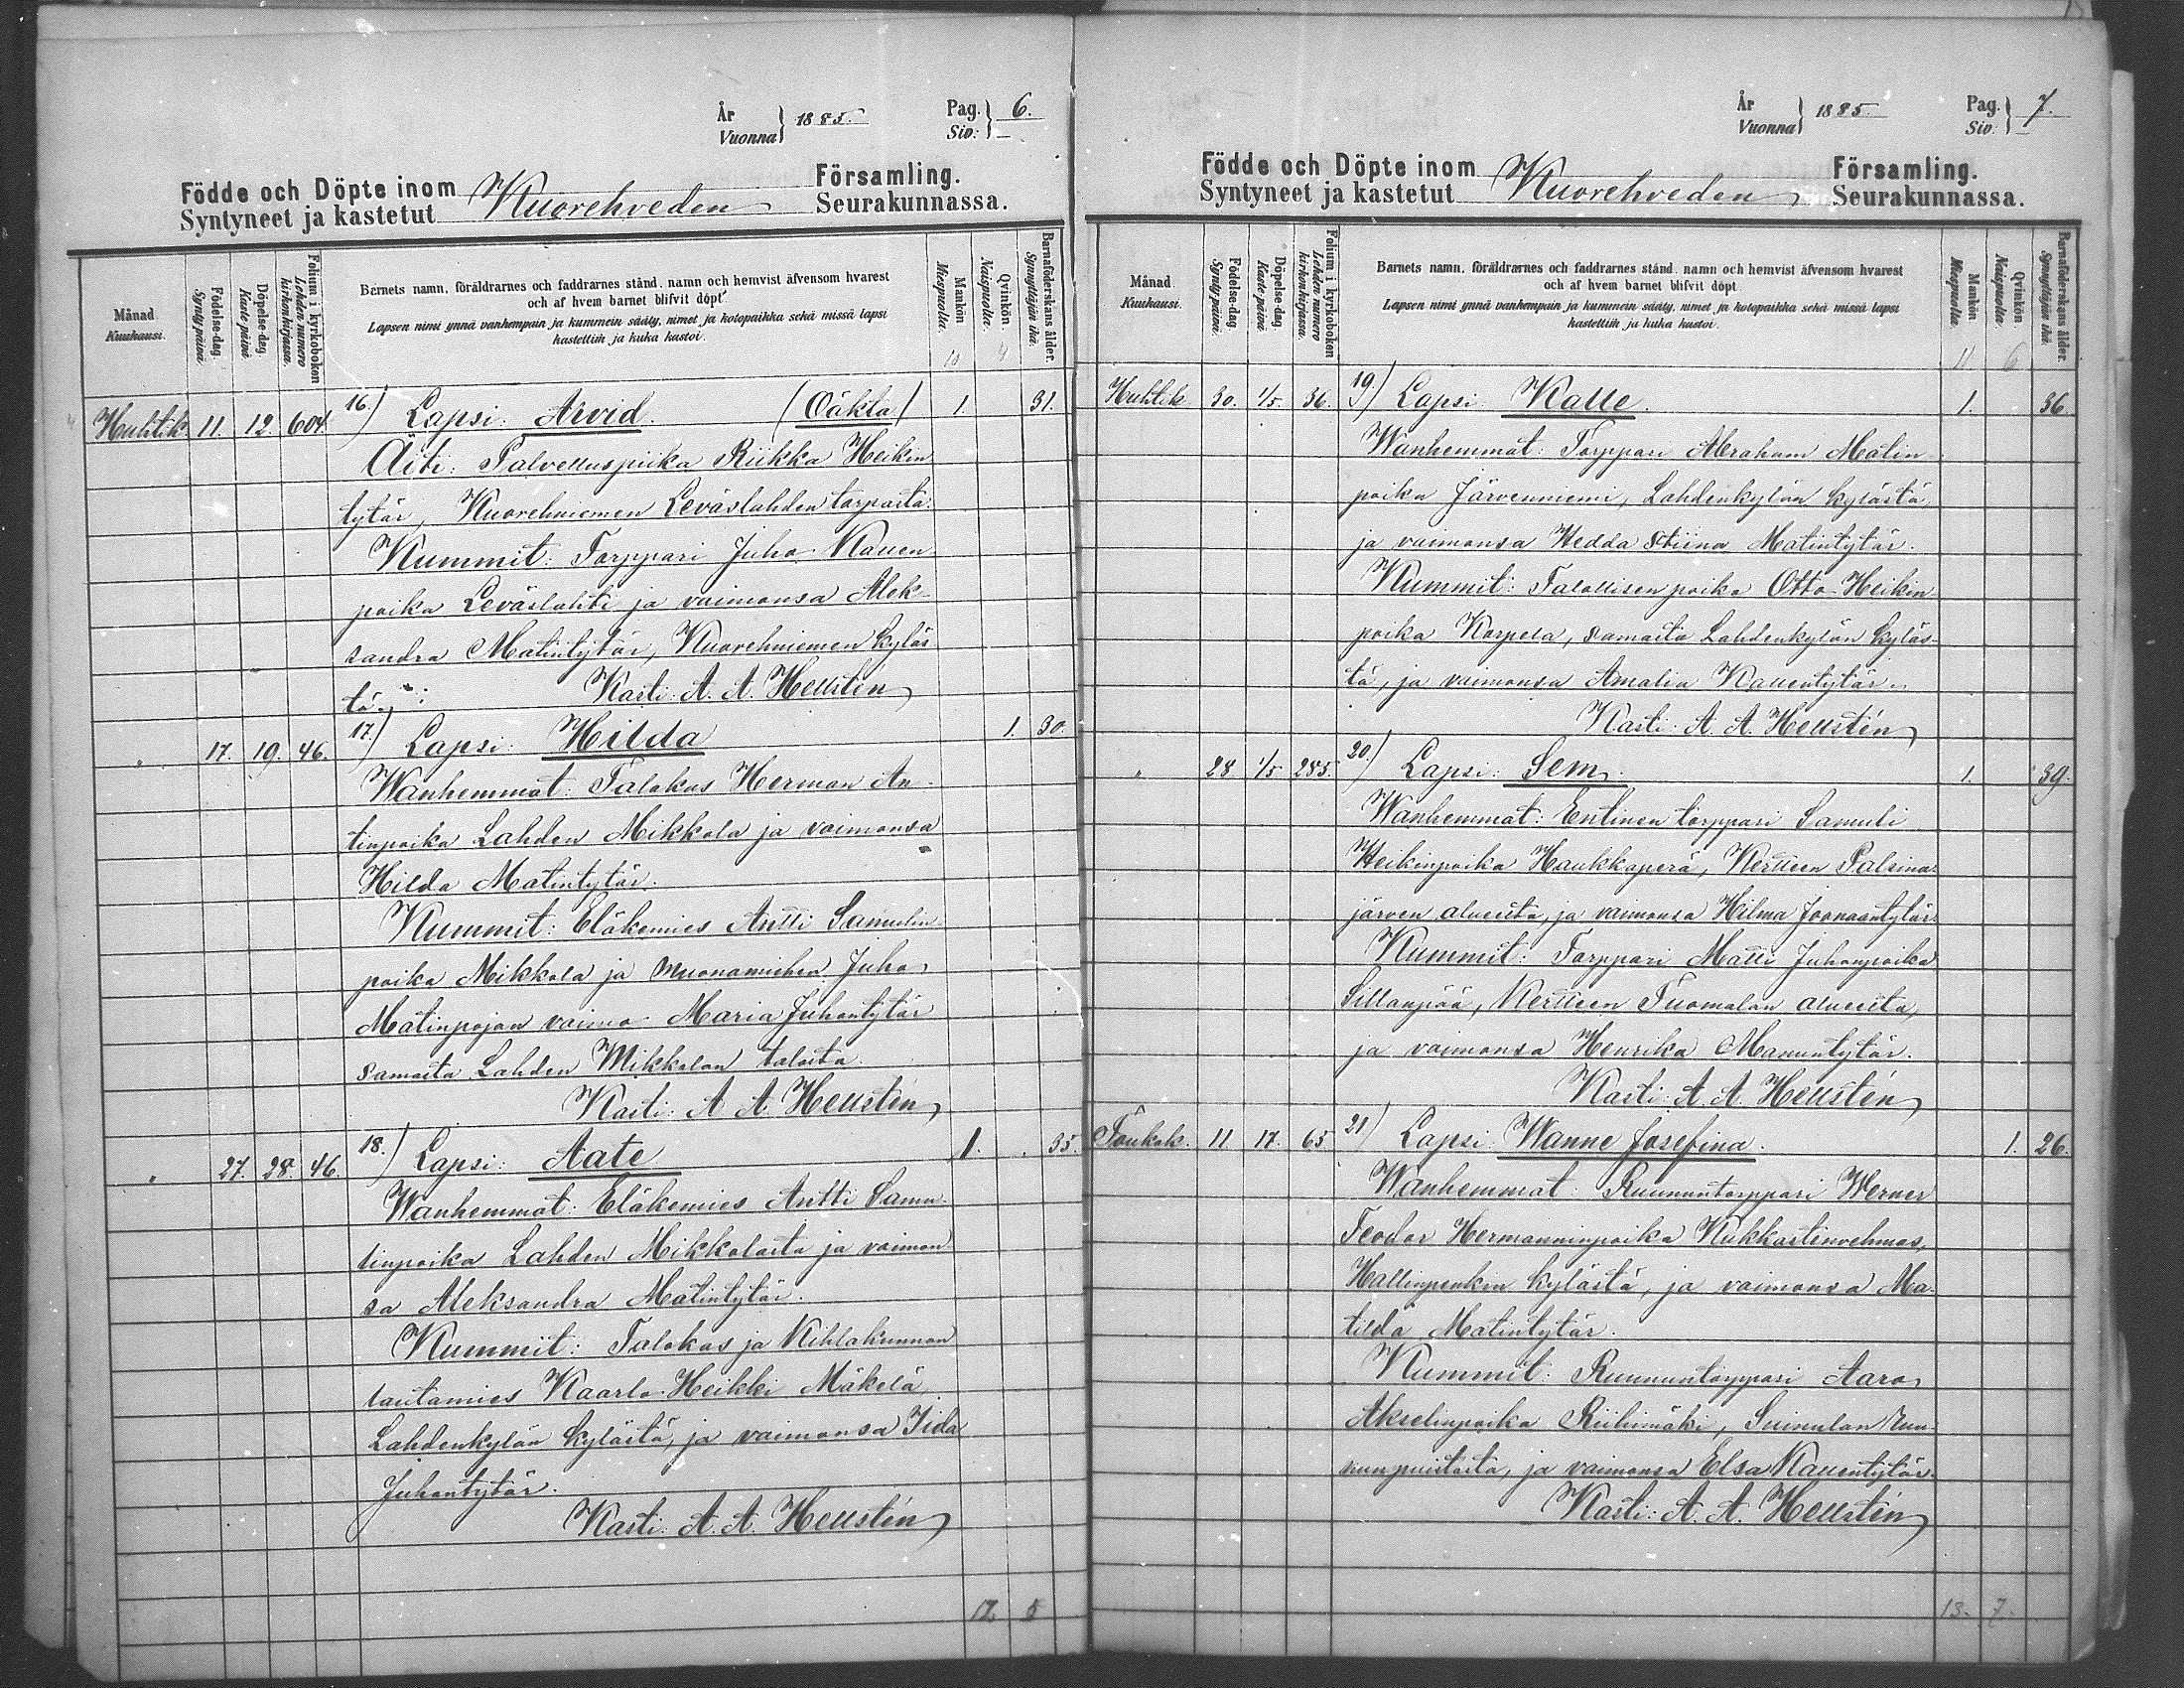 År
Vuonna } 1885.
Pag.
Siv: } 6.
Födde och Döpte inom Kuorehveden Församling.
Syntyneet ja kastetut Seurakunnassa.
Månad
Kuukausi.
Födelse-dag.
Syntypäivä
Döpelse-dag.
Kaste päivä
Folium i kyrkoboken
Lehden numero
kirkonkirjassa.
Barnets namn, föräldrarnes och faddrarnes stånd, namn och hemvist äfvensom hvarest
och af hvem barnet blifvit döpt.
Lapsen nimi ynnä vanhempain ja kummein sääty, nimet ja kotopaikka sekä missä lapsi
kastettiin ja kuka kastoi.
Mankön
Miespuolta.
Qvinkön.
Naispuolta.
Barnaföderskans ålder.
Synnyttäjän ikä.
10 4
Huhtik. 11. 12. 604. 16.) Lapsi: Arvid. (Oäkta) 1. 31.
Äiti: Palvelluspiika Riikka Heikin
tytär, Kuorehniemen Leväslahden torpasta.
Kummit: Torppari Juho Kallen
poika Leväslahti ja vaimonsa Alek-
sandra Matintytär, Kuorehniemen kyläs
tä.
Kasti: A. A. Hellstén
" 17. 19. 46. 17.) Lapsi: Hilda 1. 30.
Wanhemmat: Talokas Herman An-
tinpoika Lahden Mikkola ja vaimonsa
Hilda Matintytär.
Kummit: Eläkemies Antti Samulin
poika Mikkola ja muonamiehen Juho
Matinpojan vaimo Maria Juhontytär
samasta Lahden Mikkolan talosta.
Kasti: A. A. Hellstén
" 27. 28. 46. 18.) Lapsi: Aate 1. 35.
Wanhemmat: Eläkemies Antti Samu-
linpoika Lahden Mikkolasta ja vaimon
sa Aleksandra Matintytär.
Kummit: Talokas ja Kihlakunnan
lautamies Kaarlo Heikki Mäkelä
Lahdenkylän kylästä, ja vaimonsa Iida
Juhontytär.
Kasti: A. A. Hellstén
12. 5
År
Vuonna } 1885.
Pag.
Siv: } 7.
Födde och Döpte inom Kuorehveden Församling.
Syntyneet ja kastetut Seurakunnassa.
Månad
Kuukausi.
Födelse-dag.
Syntypäivä.
Döpelse-dag.
Kaste päivä
Folium i kyrkoboken
Lehden numero
kirkonkirjassa.
Barnets namn, föräldrarnes och faddrarnes stånd, namn och hemvist äfvensom hvarest
och af hvem barnet blifvit döpt.
Lapsen nimi ynnä vanhempain ja kummein sääty, nimet ja kotopaikka sekä missä lapsi
kastettiin ja kuka kastoi.
Mankön
Miespuolta.
Qvinkön.
Naispuolta.
Barnaföderskans ålder.
Synnyttäjän ikä.
11 6
Huhtik. 30. 1/5. 36. 19.) Lapsi: Kalle. 1. 36
Wanhemmat: Torppari Abraham Matin
poika Järvenniemi, Lahdenkylän kylästä,
ja vaimonsa Hedda Stiina Matintytär.
Kummit: Talollisen poika Otto Heikin
poika Korpela, samasta Lahdenkylän kyläs-
tä, ja vaimonsa Amalia Kallentytär.
Kasti: A. A. Hellstén
" 28 1/5 285. 20.) Lapsi: Sem. 1. 39.
Wanhemmat: Entinen torppari Samuli
Heikinpoika Haukkaperä, Kertteen Palsina
järven alueelta, ja vaimonsa Hilma Joonaantytär.
Kummit: Torppari Matti Juhonpoika
Sillanpää, Kertteen Tuomalan alueelta,
ja vaimonsa Henrika Manuntytär.
Kasti: A. A. Hellstén
Toukok. 11 17. 65 21) Lapsi: Wanne Josefina. 1. 26.
Wanhemmat: Ruununtorppari Werner
Feodor Hermanninpoika Kukkastenrehmas,
Hallinpenkin kylästä, ja vaimonsa Ma-
tilda Matintytär.
Kummit: Ruununtorppari Aaro
Akselinpoika Riihimäki, Suinulan ruu-
nunpuistosta, ja vaimonsa Elsa Kallentytär.
Kasti: A. A. Hellstén
13. 7.